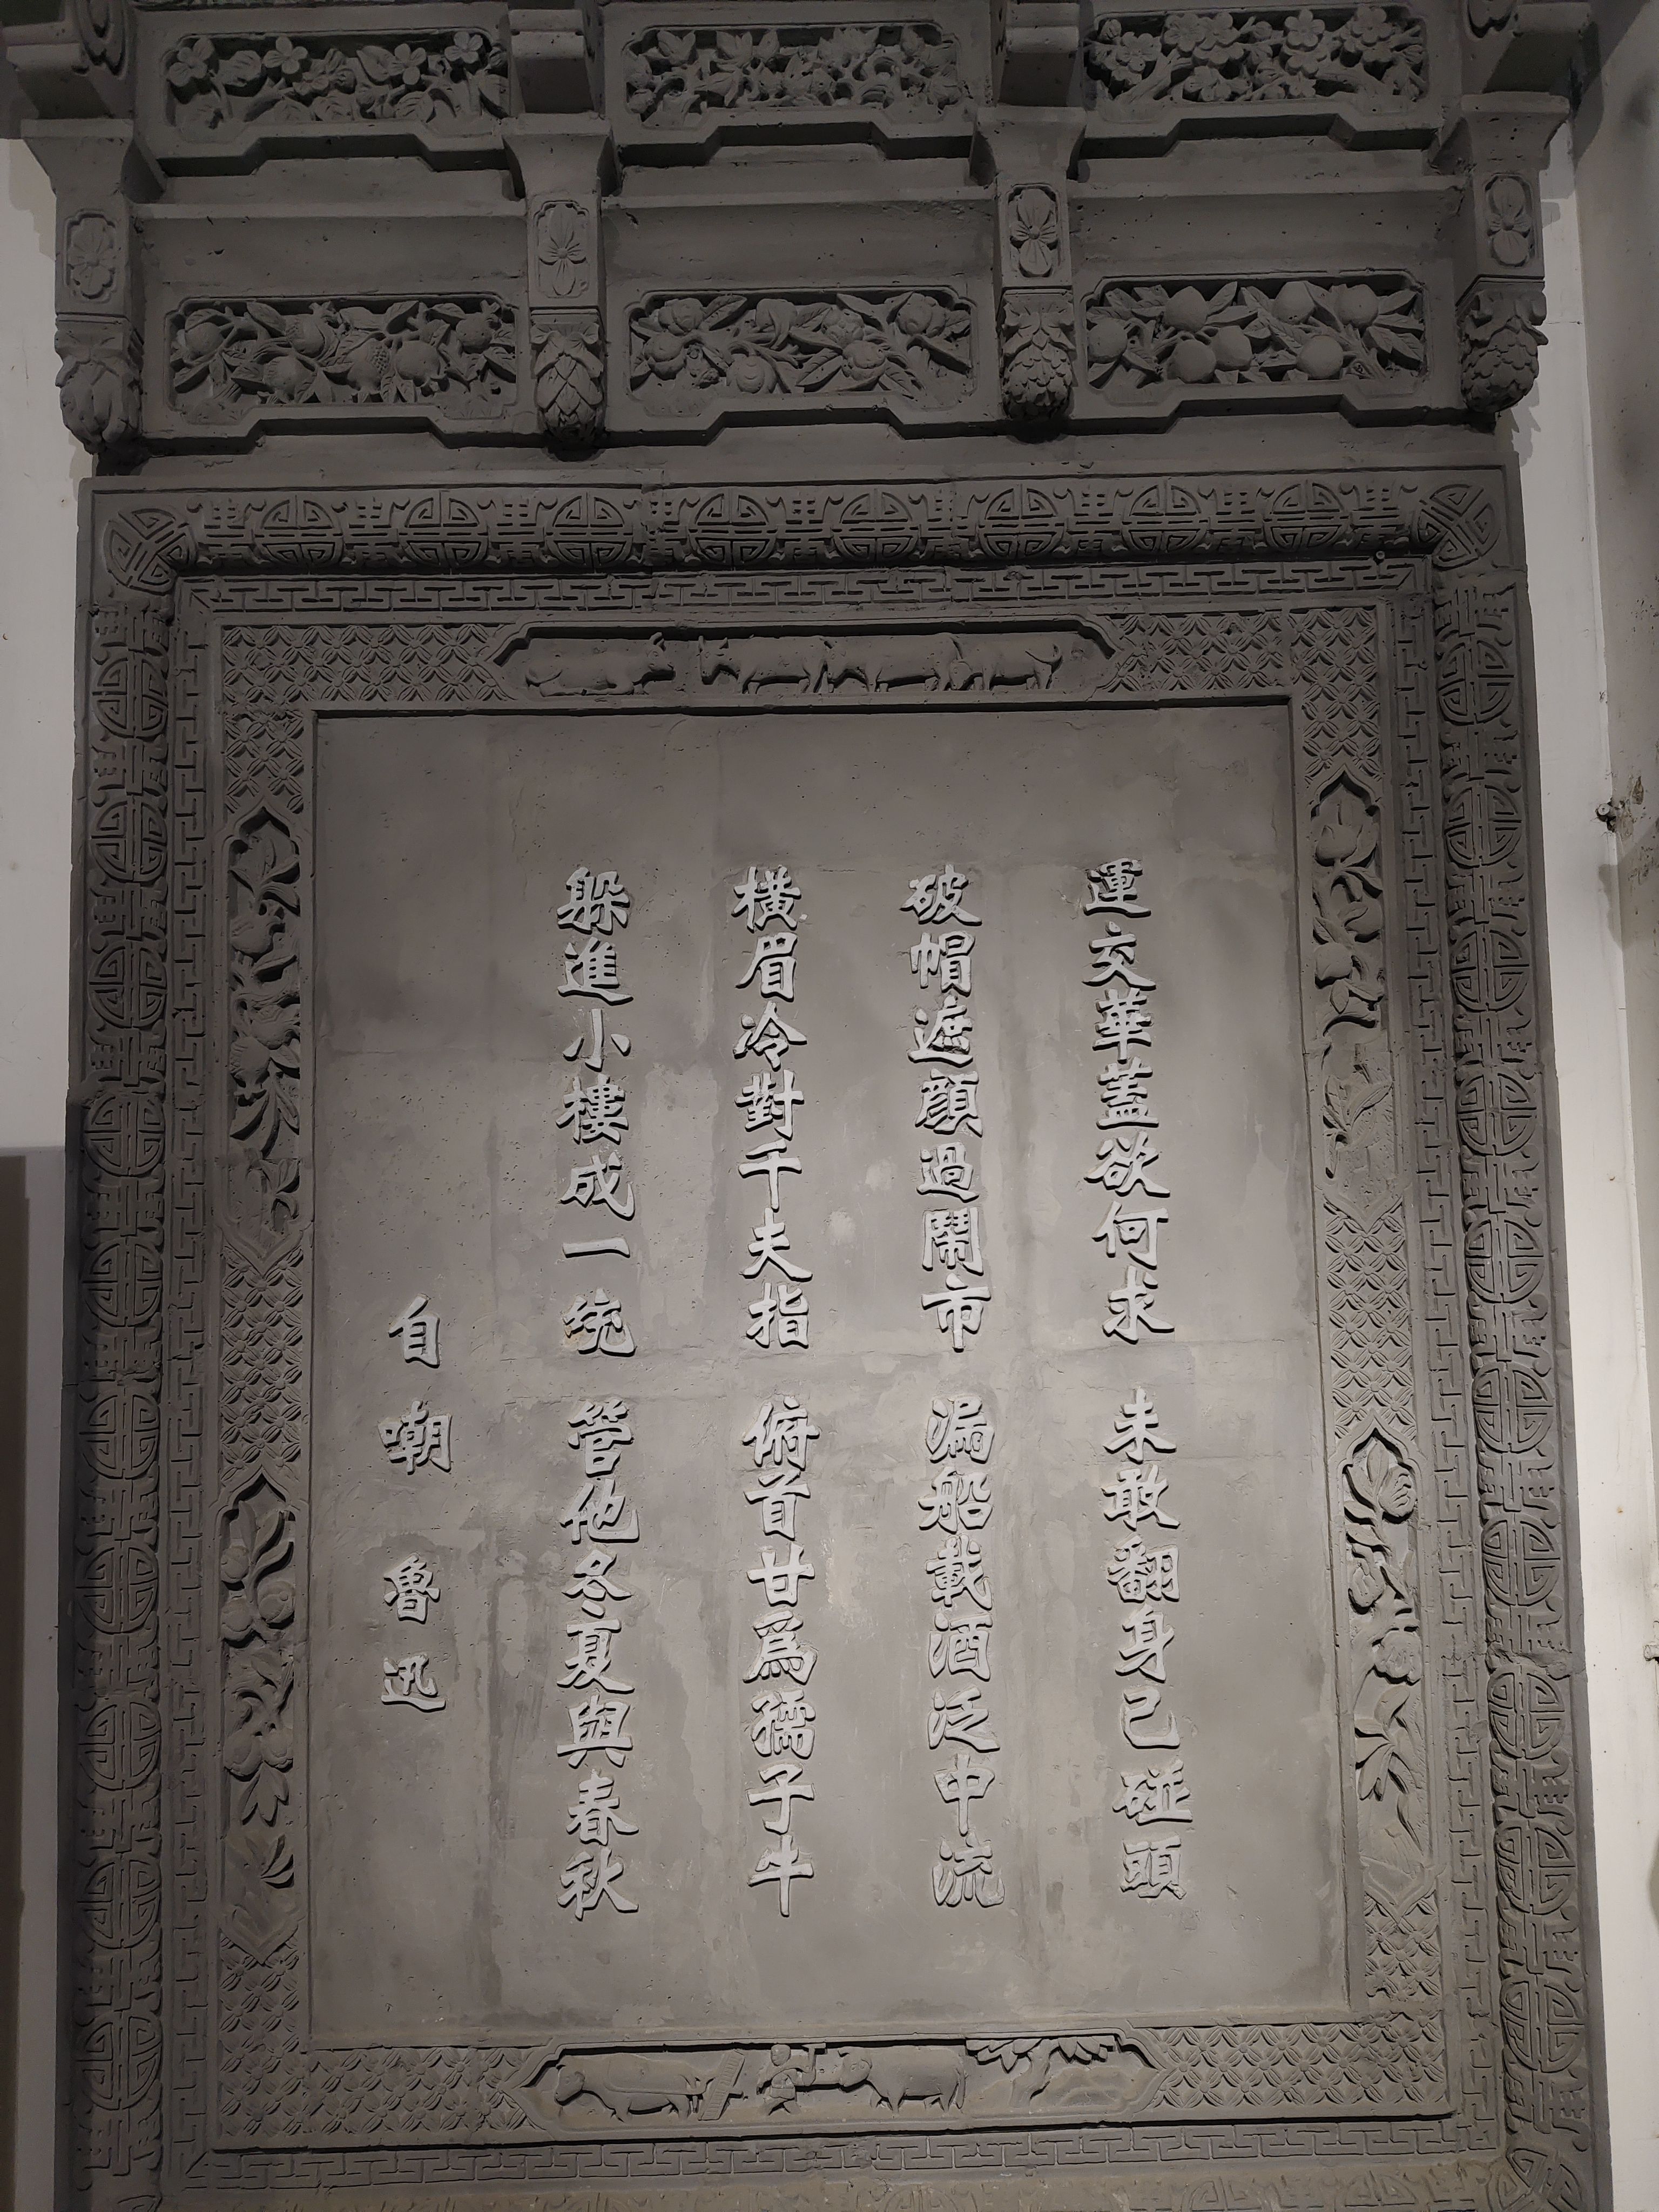 運交華蓋欲何求 未敢翻身已碰頭
破帽遮顏過鬧市 漏船載酒泛中流
橫眉冷對千夫指 俯首甘爲孺子牛
躲進小樓成一統 管他冬夏與春秋
自嘲 魯迅